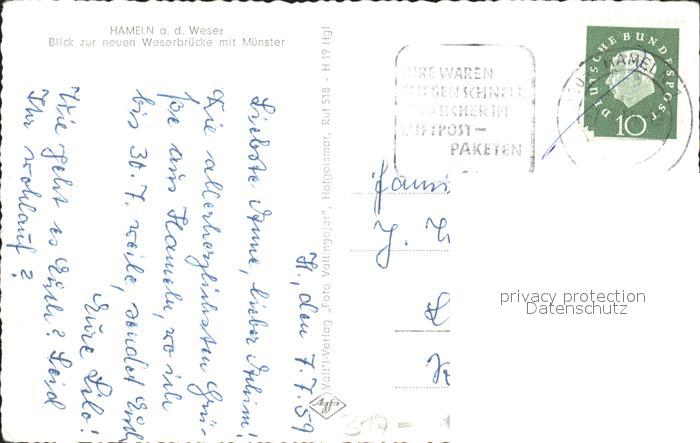 HAMELN a. d. Weser
Blick zur neuen Weserbrücke mit Münster
H., den 7.7.59
Liebste Anne, lieber Achim!
Die allerherzlichsten Grü-
ße aus Hameln, wo ich
bis 30.7. weile, sendet Euch
Eure Lilo!
Wie geht es Euch? Seid
Ihr wohlauf?
Valit-Verlag „Foto Valtingojer", Hofgeismar, Ruf 518 - H 19 Hgl
IHRE WAREN
FLIEGEN SCHNELL
UND SICHER IN
LUFTPOST-
PAKETEN
HAMELN
DEUTSCHE BUNDESPOST
10
Fami
J.
privacy protection
Datenschutz
Agfa